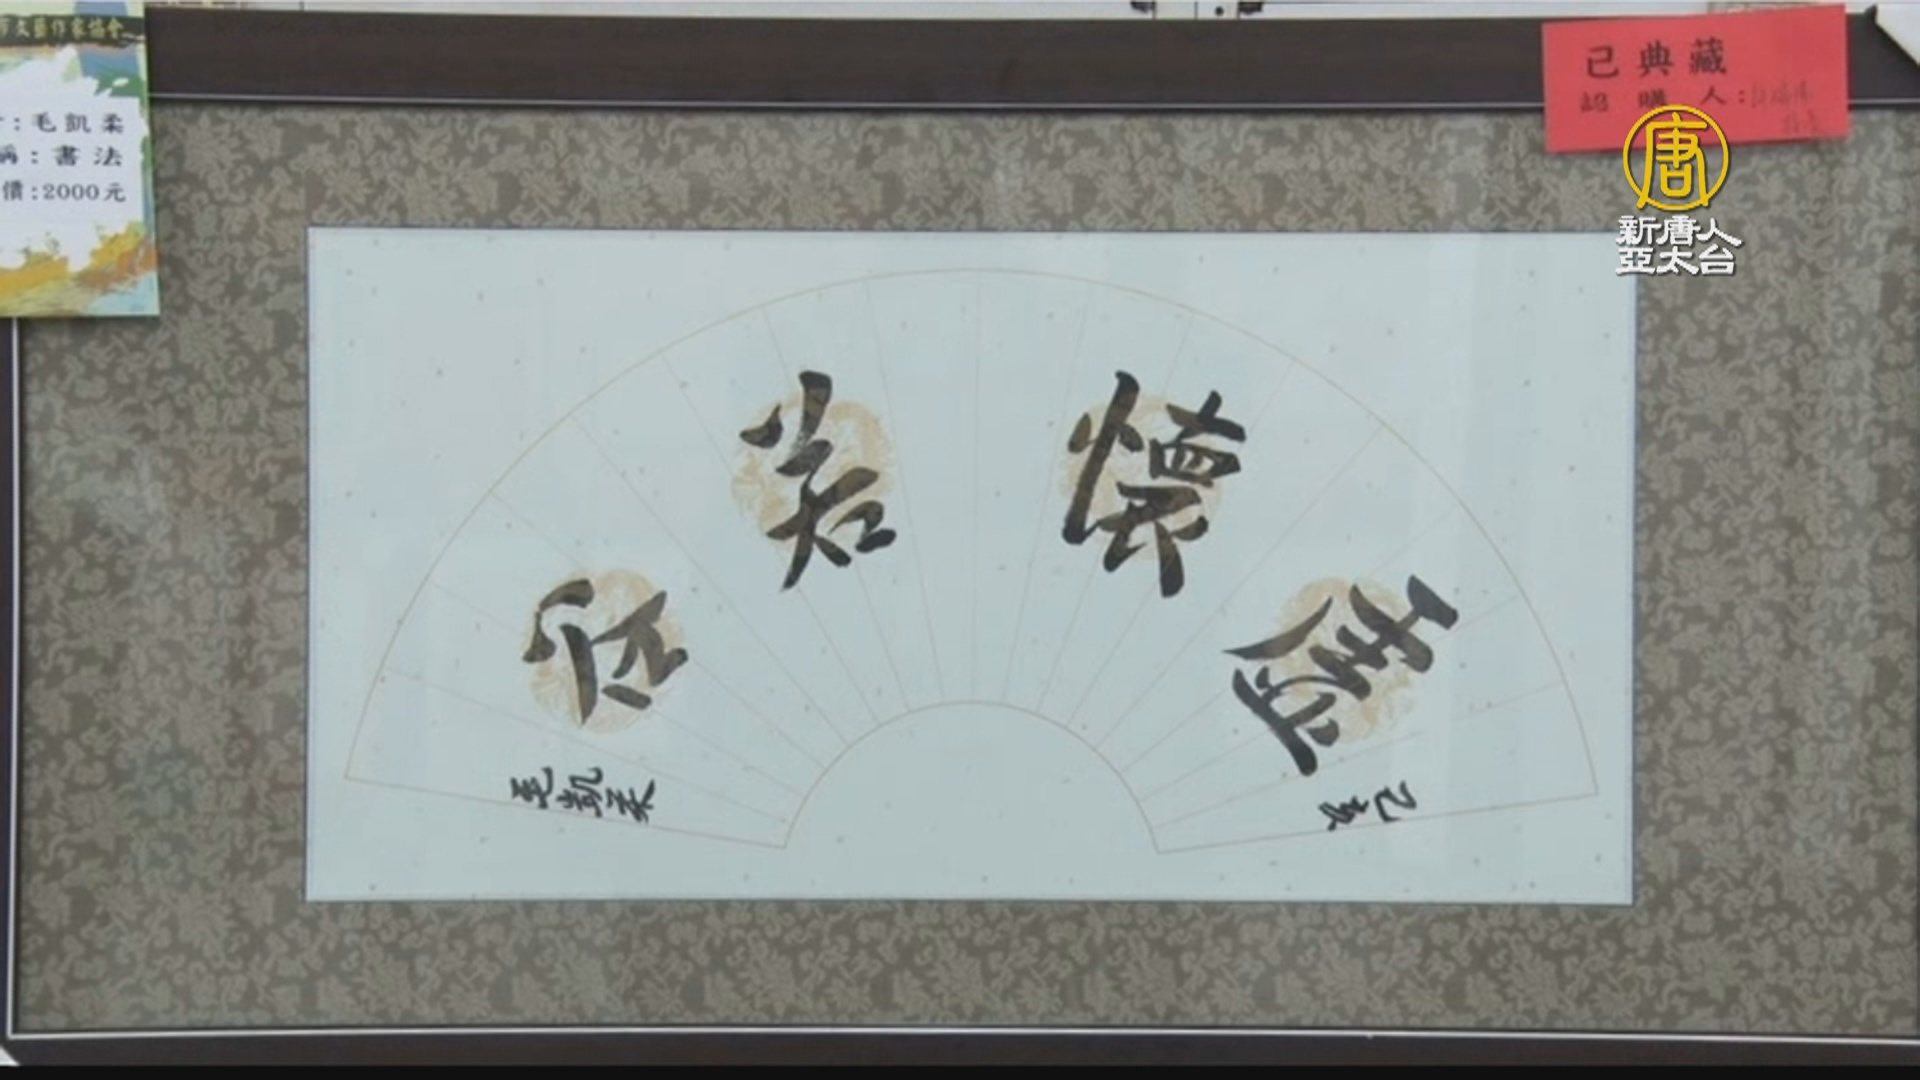 市文藝作家協會
：毛凱柔
稱：書法
價：2000元
己典藏
認購人：
唐
新唐人
亞太台
虛懷若谷
己亥
毛凱柔